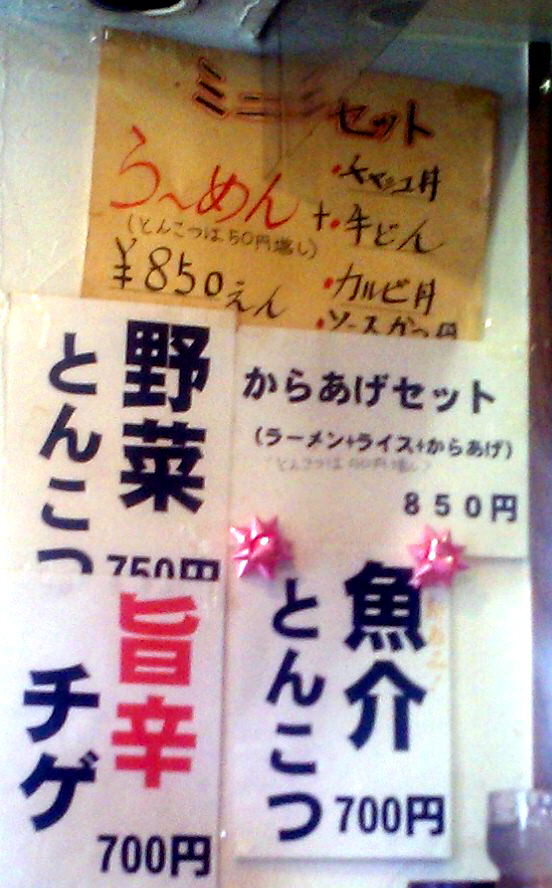 ミニミニセット
らーめん
(とんこつは50円増し)
¥850えん
+
・チャーシュー丼
・牛どん
・カルビ丼
・ソースかつ丼
野菜
とんこつ
750円
からあげセット
(ラーメン+ライス+からあげ)
(とんこつは50円増し)
850円
旨辛
チゲ
700円
魚介
とんこつ
700円